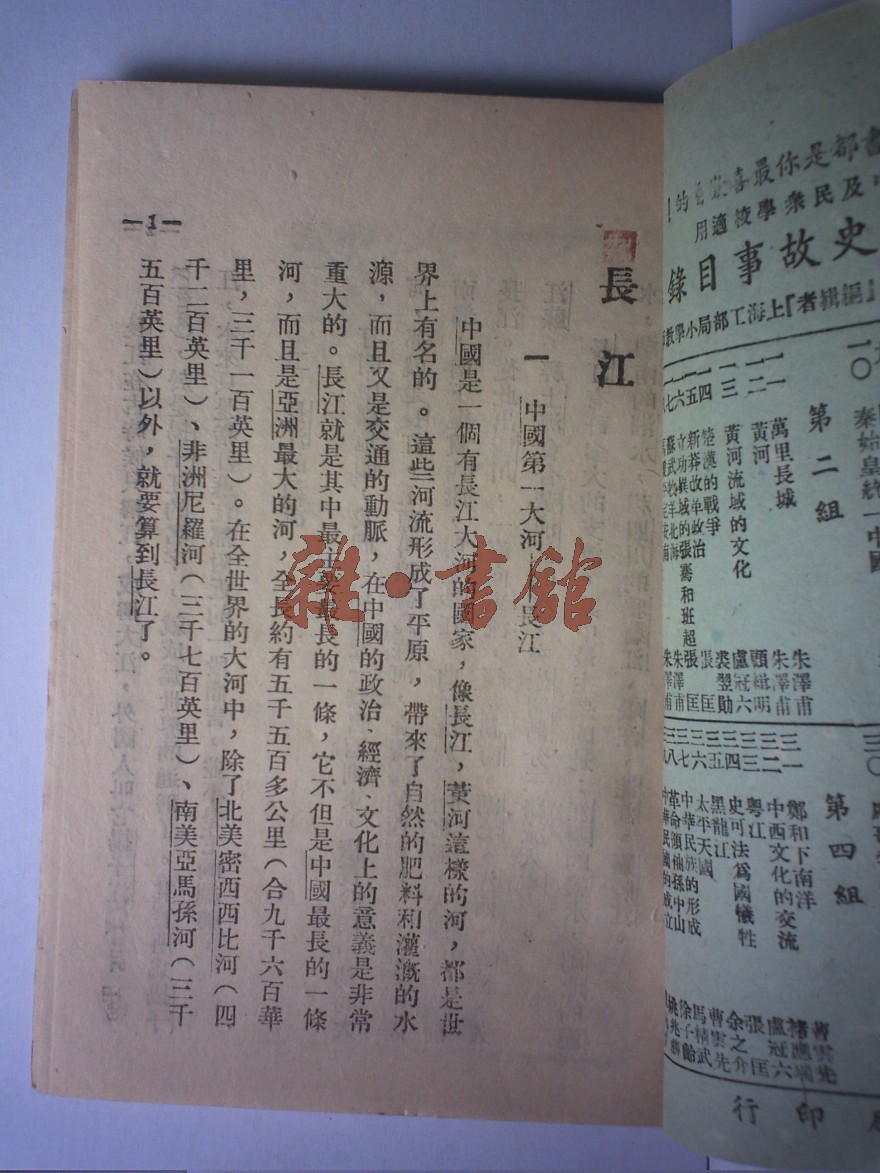 長江
一 中國第一大河——長江
中國是一個有長江大河的國家，像長江，黃河這樣的河，都是世
界上有名的。這些河流形成了平原，帶來了自然的肥料和灌漑的水
源，而且又是交通的動脈，在中國的政治、經濟、文化上的意義是非常
重大的。長江就是其中最主要最長的一條，它不但是中國最長的一條
河，而且是亞洲最大的河，全長約有五千五百多公里（合九千六百華
里，三千一百英里）。在全世界的大河中，除了北美密西西比河（四
千二百英里）、非洲尼羅河（三千七百英里）、南美亞馬孫河（三千
五百英里）以外，就要算到長江了。
—1—
書都是你最喜歡看的！
及民衆學校適用
史故事目錄
『編輯者』上海工部局小學教
一〇 秦始皇統一中國
第二組
一一 萬里長城 朱澤甫
一二 黃河 朱澤甫
一三 黃河流域的文化 顧緝明
一四 楚漢的戰爭 盧冠六
一五 新莽改革政治 裘翌勛
一六 立功異域的張騫和班超 張匡
一七 蘇武牧羊北海 朱澤甫
三〇
第四組
三一 鄭和下南洋 曹雲先
三二 中西文化的交流 褚應瑞
三三 粵江 盧冠六
三四 史可法爲國犧牲 張匡
三五 黑龍江 余之介
三六 太平天國 曹雲先
三七 中華民族的形成 馬精武
三八 革命領袖孫中山 徐子飴
印行
雜·書館